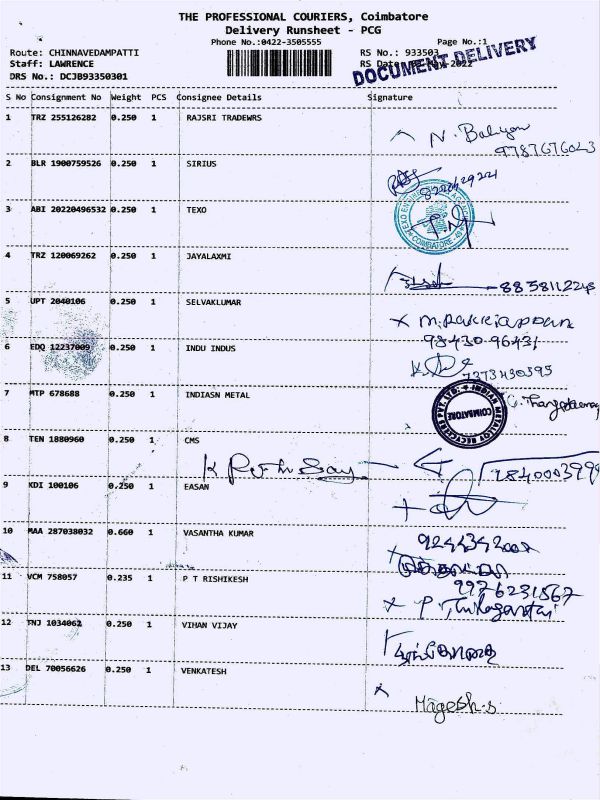 THE PROFESSIONAL COURIERS, Coimbatore
Delivery Runsheet - PCG
Phone No.:0422-3505555
Page No.:1
Route: CHINNAVEDAMPATTI
RS No.: 933503
Staff: LAWRENCE
RS Date
DOCUMENT DELIVERY
DRS No.: DCJB93350301
S No Consignment No Weight PCS Consignee Details Signature
1 TRZ 255126282 0.250 1 RAJSRI TRADEWRS
N. Balıyan
9787676023
2 BLR 1900759526 0.250 1 SIRIUS
3 ABI 20220496532 0.250 1 TEXO
COIMBATORE
4 TRZ 120069262 0.250 1 JAYALAXMI
5 UPT 2040106 0.250 1 SELVAKLUMAR
98430-96431
6 EDQ 12237009 0.250 1 INDU INDUS
7373430395
7 MTP 678688 0.250 1 INDIASN METAL
INDIAN METALLOY RECYCLERS PVT. LTD.
COIMBATORE
8 TEN 1880960 0.250 1 CMS
9 KDI 100106 0.250 1 EASAN
10 MAA 287038032 0.660 1 VASANTHA KUMAR
11 VCM 758057 0.235 1 P T RISHIKESH
9976231567
12 TNJ 1034062 0.250 1 VIHAN VIJAY
13 DEL 70056626 0.250 1 VENKATESH
Magesh.s